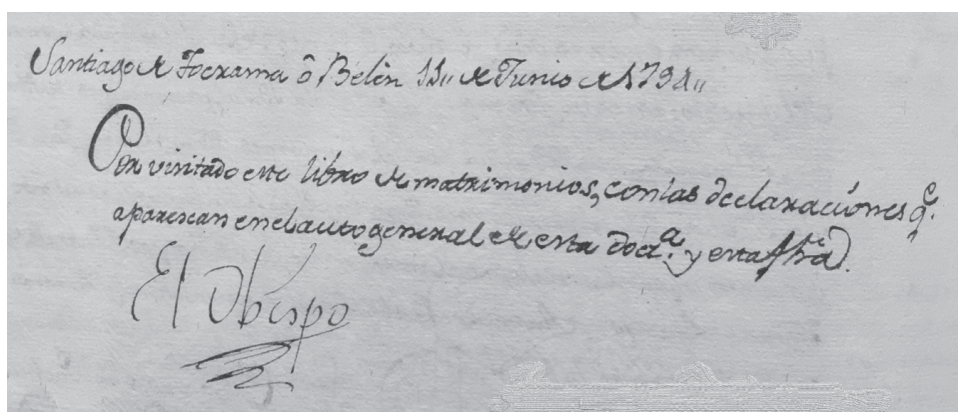 Santiago de Tocrama ô Belèn 11,, de Junio de 1791,,
Por visitado este libro de matrimonios, con las declaraciónes q.e
aparescan en el auto general de esta doct.a y esta fhã.
El Obispo